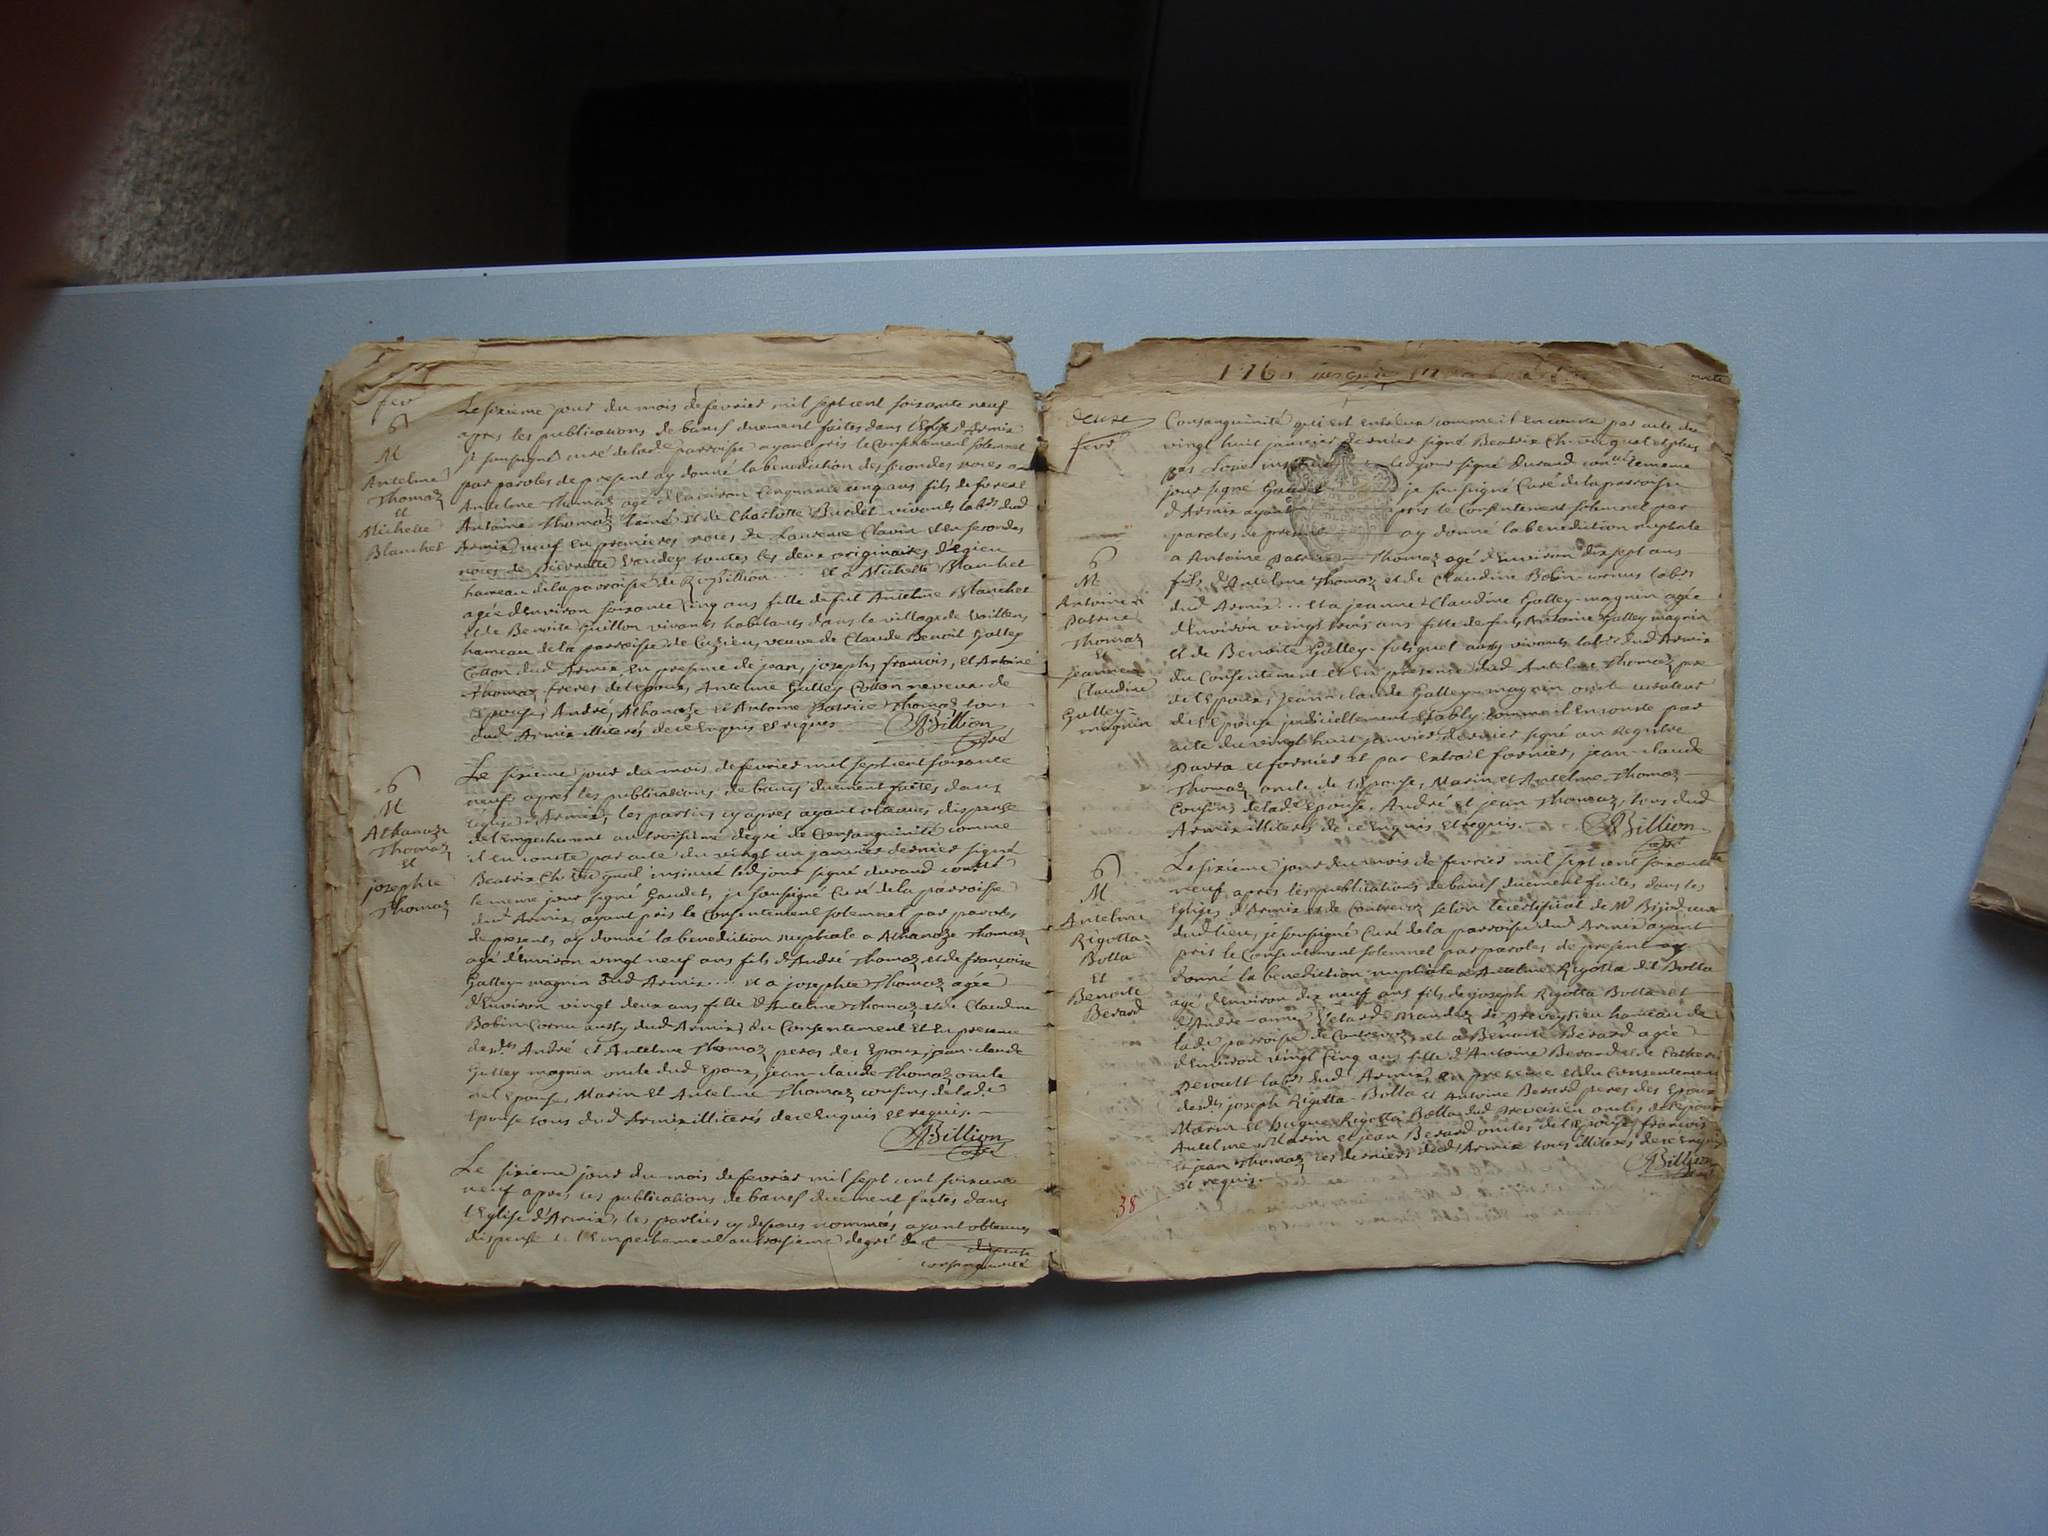 fevr
6
M
Antelme
Thomaz
et
Michelle
Blanchet
Le sixieme jour du mois de fevrier mil sept cent soixante neuf
apres les publications de bancs duement faites dans l'Eglise d'Armix
je soussigné curé de lade parroisse ayant pris le Consentement solemnel
par paroles de present ay donné la benediction des secondes noces a
Antelme Thomaz agé d'Environ Cinquante cinq ans fils de
Antoine Thomaz et de Charlotte vivants labrs dud
Armix veuf en premieres noces de Laurence Clavin et en secondes
noces de Pierrette toutes les deux originaires d'Egieu
hameau de la parroisse de Rossillion et a Michelle Blanchet
agée d'Environ soixante cinq ans fille de fut Antelme Blanchet
et de Benoite Guillon vivants habitants dans le village de
hameau de la parroisse de Cuzieu, veuve de Claude Benoit Galley
Cotton dud Armix, En presence de jean, joseph, francois, et Antoine
Thomaz freres de l'Epoux, Antelme Galley Cotton neveux de
Epouse, André, Athanaze et Antoine Patrice Thomaz tous
dud Armix illiteres de ce Enquis et requis
Billion
curé
6
M
Athanaze
Thomaz
et
josephte
Thomaz
Le sixieme jour du mois de fevrier mil sept cent soixante
neuf apres les publications de bancs duement faites dans
l'Eglise d'Armix, les parties cy apres ayant obtenues dispense
de l'Empechement au troisieme degré de Consanguinité comme
il en conste par acte du vingt un janvier dernier signé
Beatrix insinué led jour signé durand
le meme jour signé Gaudet, je soussigné Curé de la parroisse
dud Armix, ayant pris le Consentement solemnel par paroles
de present, ay donné la benediction nuptiale a Athanaze Thomaz
agé d'Environ vingt neuf ans fils d'André Thomaz et de françoise
Galley magnin dud Armix et a josephte Thomaz agée
d'Environ vingt deux ans fille d'Antelme Thomaz et de Claudine
Bobin-Cornu aussy dud Armix du Consentement et En presence
desds André et Antelme Thomaz peres des Epoux, jean-claude
Galley magnin oncle dud Epoux, jean-claude Thomaz oncle
de l'Epouse, Marin et Antelme Thomaz cousins de lade
Epouse tous dud Armix illiterés de ce Enquis et requis.
Billion
curé
Le sixieme jour du mois de fevrier mil sept cent soixante
neuf apres les publications de bancs duement faites dans
l'Eglise d'Armix, les parties cy desous nommées ayant obtenues
dispense de l'Empechement au troisieme degré de
consanguinité
176
deuze
fevr
Consanguinité qui est entr'eux comme il en conste par acte du
vingt huit janvier dernier signé Beatrix et plus
bas led jour signé durand le meme
jour signé Gaudet je soussigné Curé de la parroisse
d'Armix ayant pris le Consentement solemnel par
paroles de present ay donné la benediction nuptiale
6
M
Antoine
Patrice
Thomaz
et
jeanne
Claudine
Galley-
magnin
a Antoine Patrice Thomaz agé d'Environ dix sept ans
fils d'Antelme Thomaz et de Claudine Bobin-cornu labrs
dud Armix et a jeanne-Claudine Galley-magnin agée
d'Environ vingt trois ans fille de fut Antoine Galley magnin
et de Benoite Galley aussy vivants labrs dud Armix
du Consentement et En presence dud Antelme Thomaz pere
de l'Epoux, jean-claude Galley-magnin oncle curateur
de l'Epouse judiciellement Etably comme il En conste par
acte du vingt huit janvier dernier signé au Registre
Parra et fornier et par extrait fornier, jean-claude
Thomaz oncle de l'Epouse, Marin et Antelme Thomaz
Cousins de lade Epouse, André et jean Thomaz, tous dud
Armix illiteres de ce Enquis et requis.
Billion
curé
6
M
Antelme
Rigotta
Botta
et
Benoite
Berard
Le sixieme jour du mois de fevrier mil sept cent soixante
neuf, apres les publications de bancs duement faites dans les
Eglises d'Armix et de Contrevoz selon le certificat de Mr curé
dud lieu, je soussigné Curé de la parroisse dud Armix ayant
pris le Consentement solemnel par paroles de present ay
donné la benediction nuptiale a Antelme Rigotta dit Botta
agé d'Environ dix neuf ans fils de joseph Rigotta Botta et
d'Andre-anne de Preveysieu hameau de
lade parroisse de Contrevoz, et a Benoite Berard agée
d'Environ vingt Cinq ans fille d'Antoine Berard et de
labrs dud Armix, En presence et du Consentement
desds joseph Rigotta-Botta et Antoine Berard peres des Epoux
Marin et hugue Rigotta Botta dud Preveisieu oncles de l'Epoux
Antelme Marin et jean Berard oncles de l'Epouse, francois
et jean Thomaz ces derniers dud Armix tous illiteres de ce Enquis
et requis.
Billion
curé
38